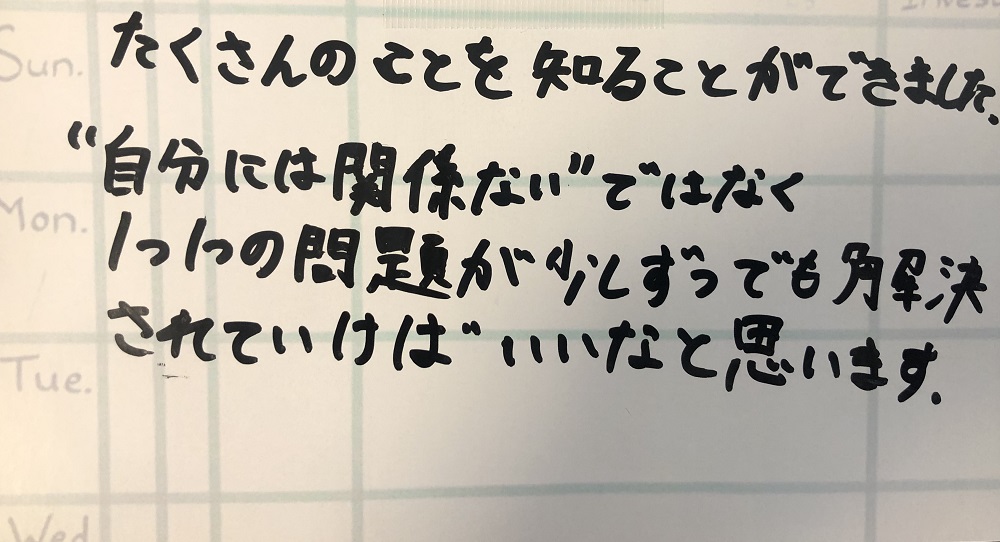 Sun.
Mon.
Tue.
Wed
たくさんのことを知ることができました.
“自分には関係ない”ではなく
1つ1つの問題が少しずつでも解決
されていけばいいなと思います.